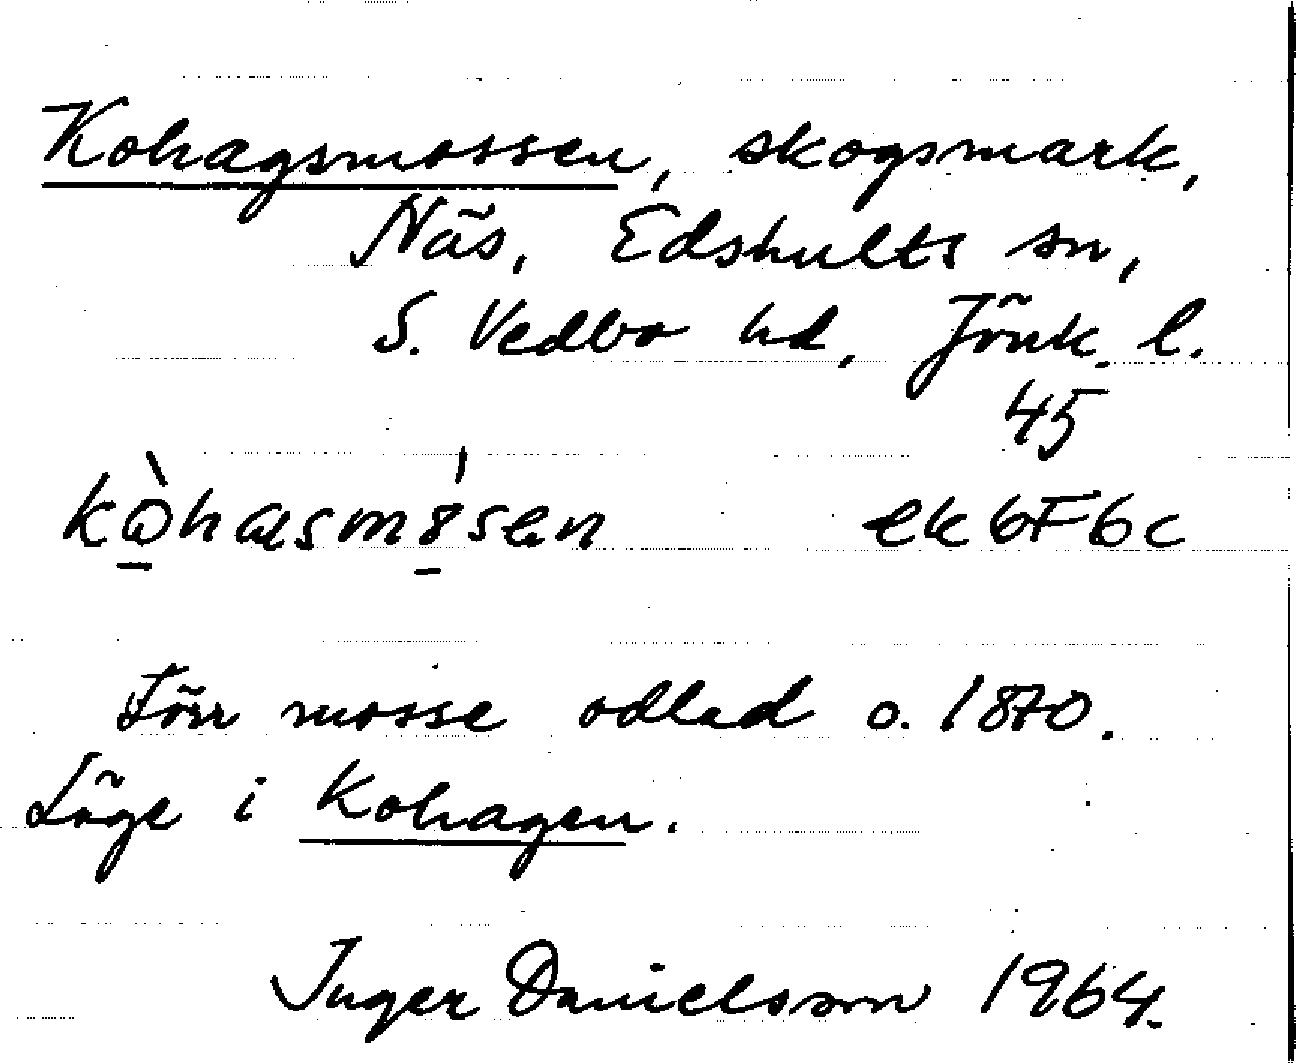 Kohagsmossen, skogsmark,
Näs, Edshults sn,
S. Vedbo hd, Jönk. l.
45
ek6F6c
Förr mosse odlad o. 1870.
Läge i Kohagen.
Inger Danielsson 1964.